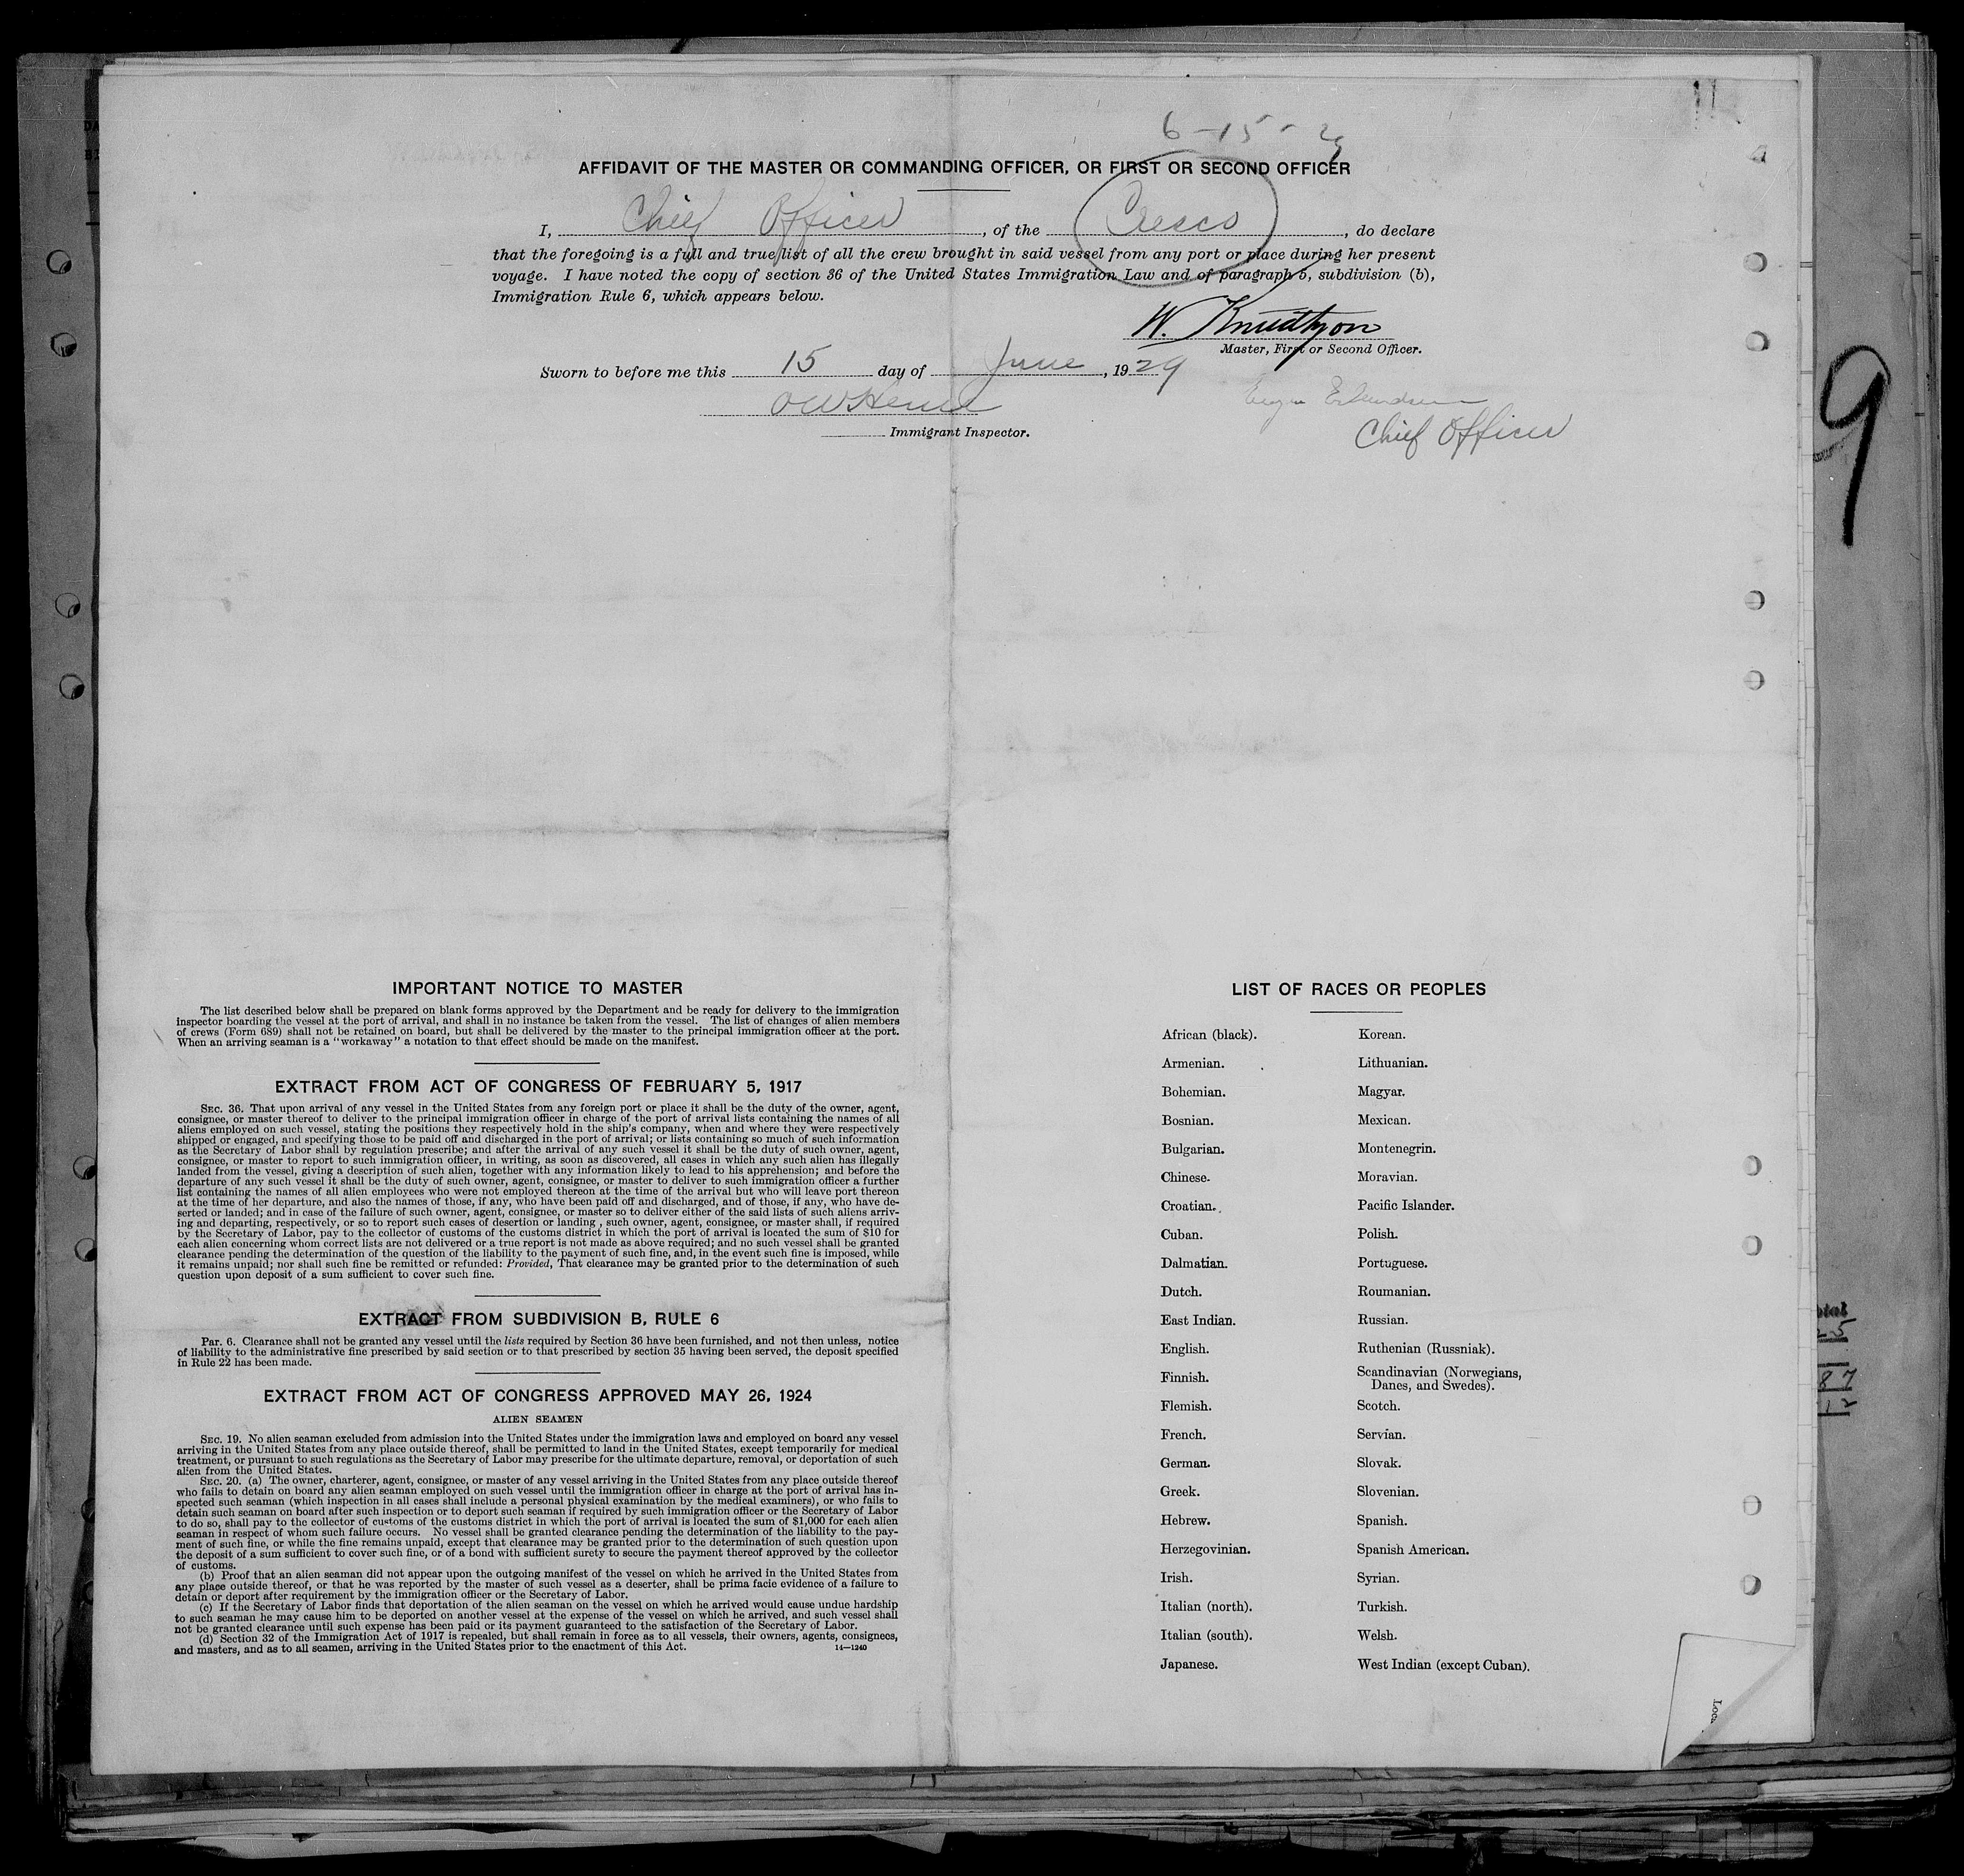 11
6-15-29
AFFIDAVIT OF THE MASTER OR COMMANDING OFFICER, OR FIRST OR SECOND OFFICER
I, Chief Officer, of the Cresco, do declare
that the foregoing is a full and true list of all the crew brought in said vessel from any port or place during her present
voyage. I have noted the copy of section 36 of the United States Immigration Law and of paragraph 5, subdivision (b),
Immigration Rule 6, which appears below.
W. Knudtzon
Master, First or Second Officer.
Sworn to before me this 15 day of June, 1929
Immigrant Inspector.
Chief Officer
9
IMPORTANT NOTICE TO MASTER
The list described below shall be prepared on blank forms approved by the Department and be ready for delivery to the immigration
inspector boarding the vessel at the port of arrival, and shall in no instance be taken from the vessel. The list of changes of alien members
of crews (Form 689) shall not be retained on board, but shall be delivered by the master to the principal immigration officer at the port.
When an arriving seaman is a "workaway" a notation to that effect should be made on the manifest.
EXTRACT FROM ACT OF CONGRESS OF FEBRUARY 5, 1917
SEC. 36. That upon arrival of any vessel in the United States from any foreign port or place it shall be the duty of the owner, agent,
consignee, or master thereof to deliver to the principal immigration officer in charge of the port of arrival lists containing the names of all
aliens employed on such vessel, stating the positions they respectively hold in the ship's company, when and where they were respectively
shipped or engaged, and specifying those to be paid off and discharged in the port of arrival; or lists containing so much of such information
as the Secretary of Labor shall by regulation prescribe; and after the arrival of any such vessel it shall be the duty of such owner, agent,
consignee, or master to report to such immigration officer, in writing, as soon as discovered, all cases in which any such alien has illegally
landed from the vessel, giving a description of such alien, together with any information likely to lead to his apprehension; and before the
departure of any such vessel it shall be the duty of such owner, agent, consignee, or master to deliver to such immigration officer a further
list containing the names of all alien employees who were not employed thereon at the time of the arrival but who will leave port thereon
at the time of her departure, and also the names of those, if any, who have been paid off and discharged, and of those, if any, who have de-
serted or landed; and in case of the failure of such owner, agent, consignee, or master so to deliver either of the said lists of such aliens arriv-
ing and departing, respectively, or so to report such cases of desertion or landing , such owner, agent, consignee, or master shall, if required
by the Secretary of Labor, pay to the collector of customs of the customs district in which the port of arrival is located the sum of $10 for
each alien concerning whom correct lists are not delivered or a true report is not made as above required; and no such vessel shall be granted
clearance pending the determination of the question of the liability to the payment of such fine, and, in the event such fine is imposed, while
it remains unpaid; nor shall such fine be remitted or refunded: Provided, That clearance may be granted prior to the determination of such
question upon deposit of a sum sufficient to cover such fine.
EXTRACT FROM SUBDIVISION B, RULE 6
PAR. 6. Clearance shall not be granted any vessel until the lists required by Section 36 have been furnished, and not then unless, notice
of liability to the administrative fine prescribed by said section or to that prescribed by section 35 having been served, the deposit specified
in Rule 22 has been made.
EXTRACT FROM ACT OF CONGRESS APPROVED MAY 26, 1924
ALIEN SEAMEN
SEC. 19. No alien seaman excluded from admission into the United States under the immigration laws and employed on board any vessel
arriving in the United States from any place outside thereof, shall be permitted to land in the United States, except temporarily for medical
treatment, or pursuant to such regulations as the Secretary of Labor may prescribe for the ultimate departure, removal, or deportation of such
alien from the United States.
SEC. 20. (a) The owner, charterer, agent, consignee, or master of any vessel arriving in the United States from any place outside thereof
who fails to detain on board any alien seaman employed on such vessel until the immigration officer in charge at the port of arrival has in-
spected such seaman (which inspection in all cases shall include a personal physical examination by the medical examiners), or who fails to
detain such seaman on board after such inspection or to deport such seaman if required by such immigration officer or the Secretary of Labor
to do so, shall pay to the collector of customs of the customs district in which the port of arrival is located the sum of $1,000 for each alien
seaman in respect of whom such failure occurs. No vessel shall be granted clearance pending the determination of the liability to the pay-
ment of such fine, or while the fine remains unpaid, except that clearance may be granted prior to the determination of such question upon
the deposit of a sum sufficient to cover such fine, or of a bond with sufficient surety to secure the payment thereof approved by the collector
of customs.
(b) Proof that an alien seaman did not appear upon the outgoing manifest of the vessel on which he arrived in the United States from
any place outside thereof, or that he was reported by the master of such vessel as a deserter, shall be prima facie evidence of a failure to
detain or deport after requirement by the immigration officer or the Secretary of Labor.
(c) If the Secretary of Labor finds that deportation of the alien seaman on the vessel on which he arrived would cause undue hardship
to such seaman he may cause him to be deported on another vessel at the expense of the vessel on which he arrived, and such vessel shall
not be granted clearance until such expense has been paid or its payment guaranteed to the satisfaction of the Secretary of Labor.
(d) Section 32 of the Immigration Act of 1917 is repealed, but shall remain in force as to all vessels, their owners, agents, consignees,
and masters, and as to all seamen, arriving in the United States prior to the enactment of this Act. 14—1240
LIST OF RACES OR PEOPLES
African (black). Korean.
Armenian. Lithuanian.
Bohemian. Magyar.
Bosnian. Mexican.
Bulgarian. Montenegrin.
Chinese. Moravian.
Croatian. Pacific Islander.
Cuban. Polish.
Dalmatian. Portuguese.
Dutch. Roumanian.
East Indian. Russian.
English. Ruthenian (Russniak).
Finnish. Scandinavian (Norwegians,
Danes, and Swedes).
Flemish. Scotch.
French. Servian.
German. Slovak.
Greek. Slovenian.
Hebrew. Spanish.
Herzegovinian. Spanish American.
Irish. Syrian.
Italian (north). Turkish.
Italian (south). Welsh.
Japanese. West Indian (except Cuban).
87
12